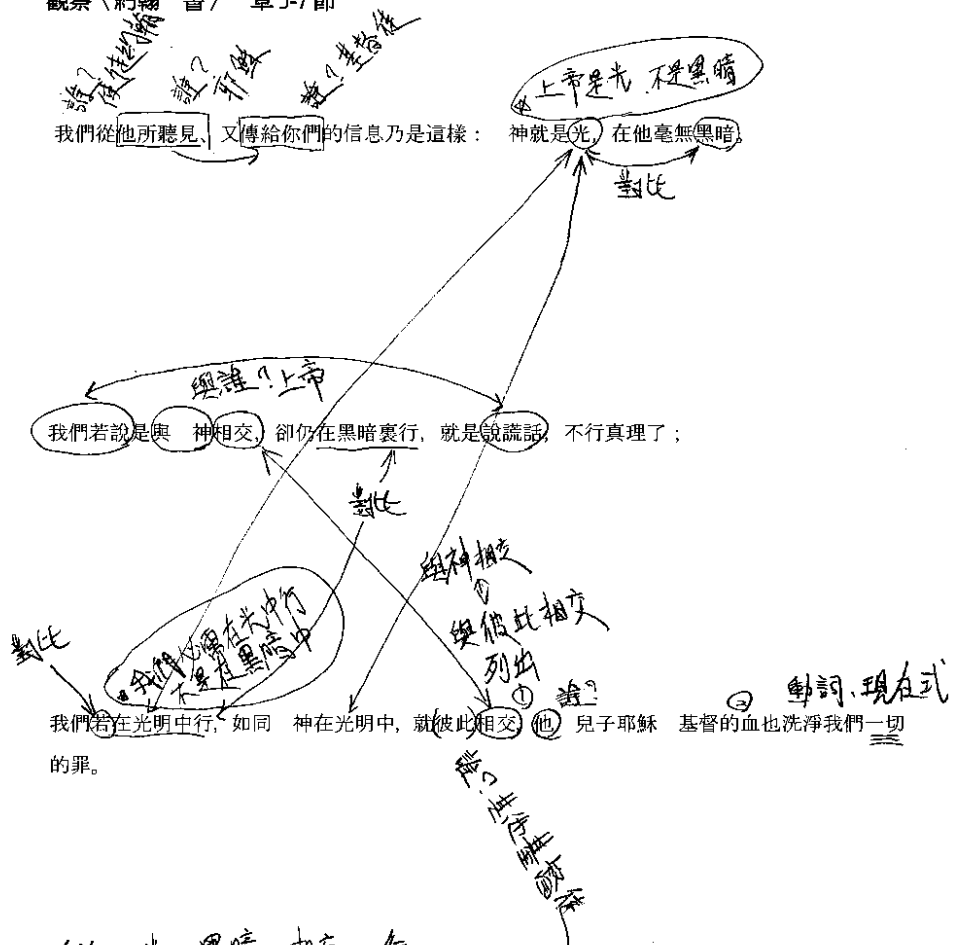 觀察〈約翰 書〉 章5-7節
誰？使徒約翰
誰？耶穌
誰？基督徒
上帝是光，不是黑暗
我們從他所聽見、又傳給你們的信息乃是這樣： 神就是光，在他毫無黑暗。
對比
與誰？上帝
我們若說是與 神相交，卻仍在黑暗裏行，就是說謊話，不行真理了；
對比
與神相交
與彼此相交
列出
對比
我們必需在光中行
不是在黑暗中
① 誰？ ② 動詞、現在式
我們若在光明中行，如同 神在光明中，就(彼此)相交，他 兒子耶穌 基督的血也洗淨我們一切
的罪。
誰？
光 黑暗 相交 行